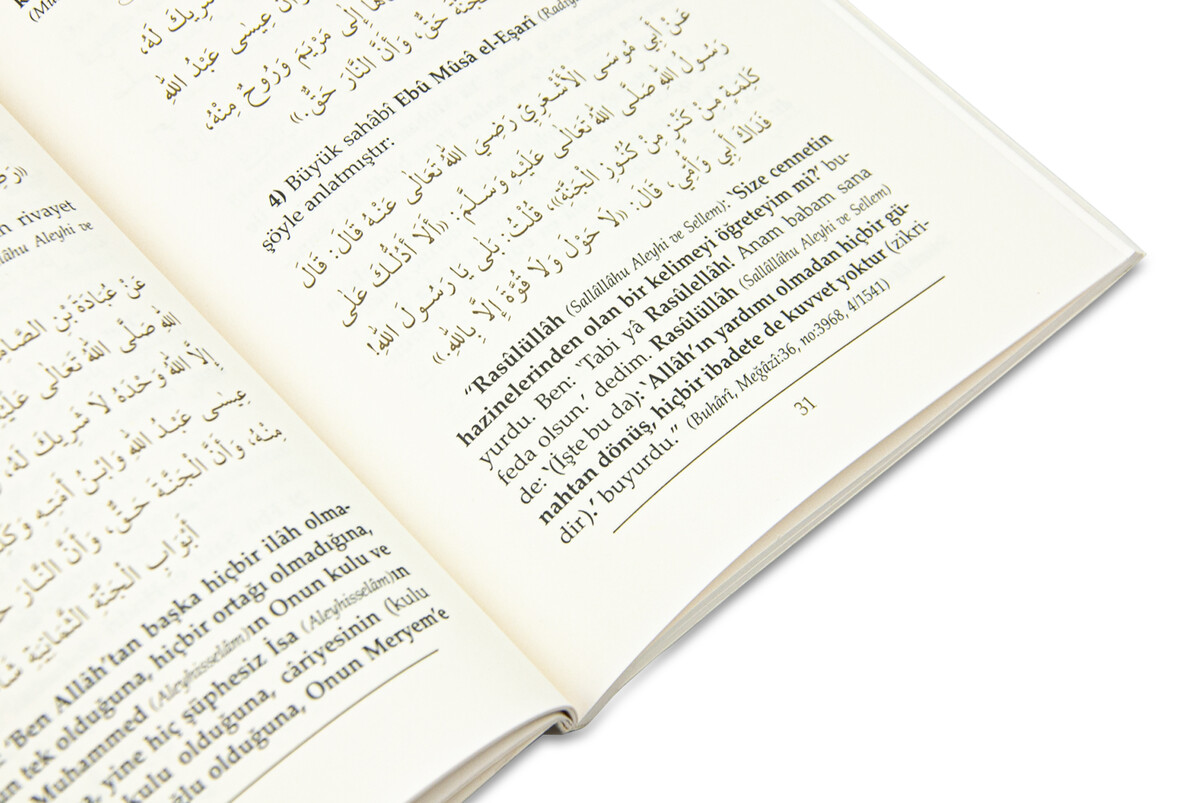 «رَضِ
ن rivayet
lâhu Aleyhi ve
عَنْ عُبَادَةَ بْنِ الصَّامِ
اللهِ صَلَّى اللهُ تَعَالَى عَلَيْهِ
إِلَّا اللهُ وَحْدَهُ لَا شَرِيكَ لَهُ،
عِيسَى عَبْدُ اللهِ وَابْنُ أَمَتِهِ وَكَلِ
مِنْهُ، وَأَنَّ الْجَنَّةَ حَقٌّ، وَأَنَّ النَّارَ حَ
أَبْوَابِ الْجَنَّةِ الثَّمَانِيَةِ شَاءَ
: ‘Ben Allâh’tan başka hiçbir ilâh olma-
un tek olduğuna, hiçbir ortağı olmadığına,
Muhammed (Aleyhisselâm)ın Onun kulu ve
yine hiç şüphesiz İsa (Aleyhisselâm)ın
kulu olduğuna, câriyesinin (kulu
ğlu olduğuna, Onun Meryem’e
شَرِيكَ لَهُ،
وَأَنَّ عِيسَى عَبْدُ اللهِ
إِلَى مَرْيَمَ وَرُوحٌ مِنْهُ،
الْجَنَّةَ حَقٌّ، وَأَنَّ النَّارَ حَقٌّ.»
4) Büyük sahâbî Ebû Mûsâ el-Eşari (Radıy
şöyle anlatmıştır:
عَنْ أَبِي مُوسَى الْأَشْعَرِيِّ رَضِيَ اللهُ تَعَالَى عَنْهُ قَالَ: قَالَ
رَسُولُ اللهِ صَلَّى اللهُ تَعَالَى عَلَيْهِ وَسَلَّمَ: «أَلَا أَدُلُّكَ عَلَى
كَلِمَةٍ مِنْ كَنْزٍ مِنْ كُنُوزِ الْجَنَّةِ»، قُلْتُ: بَلَى يَا رَسُولَ اللهِ!
فَدَاكَ أَبِي وَأُمِّي، قَالَ: «لَا حَوْلَ وَلَا قُوَّةَ إِلَّا بِاللهِ.»
“Rasûlüllâh (Sallâllâhu Aleyhi ve Sellem): ‘Size cennetin
hazinelerinden olan bir kelimeyi öğreteyim mi?’ bu-
yurdu. Ben: ‘Tabi yâ Rasûlellâh! Anam babam sana
feda olsun.’ dedim. Rasûlüllâh (Sallâllâhu Aleyhi ve Sellem)
de: ‘(İşte bu da): ‘Allâh’ın yardımı olmadan hiçbir gü-
nahtan dönüş, hiçbir ibadete de kuvvet yoktur (zikri-
dir).’ buyurdu.” (Buhârî, Meğâzî:36, no:3968, 4/1541)
31